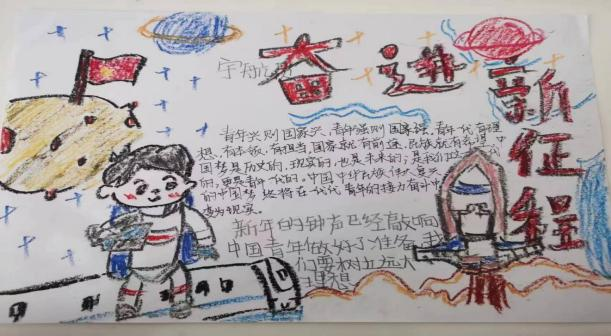 奋进新征程
宇航
青年兴则国家兴,青年强则国家强,青年一代有理
想、有本领、有担当,国家就有前途,民族就有希望。
国梦是历史的、现实的,也是未来的;是我们这一代
的,更是青年一代的。中国中华民族伟大复兴
的中国梦终将在一代代青年的接力奋斗中
变为现实。
新年的钟声已经敲响
中国青年做好了准备我
们要树立远大
理想